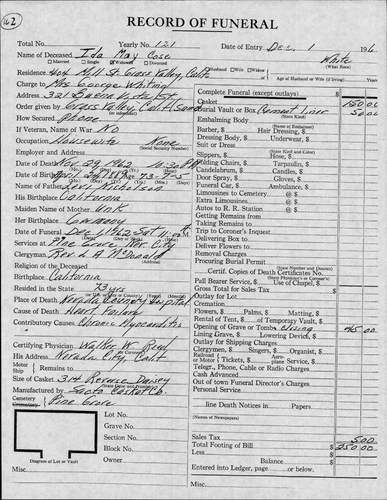 162
RECORD OF FUNERAL
Total No. Yearly No. 121 Date of Entry Dec. 1 196
Name of Deceased Ida May Case White
Married Single Widowed Divorced (What Race)
Residence 404 Mill St. Grass Valley, Calif Husband Wife or Widow of Age of Husband or Wife (if living) Years
Charge to Mrs George Whiting
Address 321
Order given by Grass Valley, Calif
How Secured Phone
If Veteran, Name of War No
Occupation Housewife None
(Social Security Number)
Employer and Address
Date of Death Nov 29, 1962 10:30 PM
Date of Birth 73-7-5
Name of Father Levi Nicholson
His Birthplace California
Maiden Name of Mother Unk
Her Birthplace Germany
Date of Funeral Dec 1 1962 Sat 11:00 AM
Services at Pine Grove City
Clergyman Rev L A McDonald
Religion of the Deceased
Birthplace California
Resided in the State 73 yrs
Place of Death Nevada County Hospital
Cause of Death Heart Failure
Contributory Causes Chronic Myocarditis
Certifying Physician Walter W. Reed
His Address Nevada City Calif
Motor
Ship Remains to
Size of Casket 314
Manufactured by Sacto Casket Co.
Cemetery
Crematory Pine Grove
Lot No.
Grave No.
Section No.
Block No.
Owner
Diagram of Lot or Vault
Misc.
Complete Funeral (except outlays) $
Casket 150 00
Burial Vault or Box Cement Liner 50 00
(State Kind)
Embalming Body
(Name of Embalmer)
Barber, $ Hair Dressing, $
Dressing Body, $ Underwear, $
Suit or Dress
(State Kind and Color)
Slippers, $ Hose, $
Folding Chairs, $ Tarpaulin, $
Candelabrum, $ Candles, $
Door Spray, $ Gloves, $
Funeral Car, $ Ambulance, $
Limousines to Cemetery @ $
Extra Limousines @ $
Autos to R. R. Station @ $
Getting Remains from
Taking Remains to
Trip to Coroner's Inquest
Delivering Box to
Deliver Flowers to
Removal Charges
Procuring Burial Permit
(State Number and District)
Certif. Copies of Death Certificates No.
(State Physician's or Coroner's)
Pall Bearer Service, $ Use of Chapel, $
Gross Total for Sales Tax $
Outlay for Lot
Cremation
Flowers, $ Palms, $ Matting, $
Rental of Tent, $ of Temporary Vault, $
Opening of Grave or Tomb Closing 45 00
Lining Grave, $ Lowering Device, $
Outlay for Shipping Charges
Clergyman, $ Singers, $ Organist, $
Railroad
or Motor Tickets, $ Aeroplane Service, $
Telegr., Phone, Cable or Radio Charges
Cash Advanced
Out of town Funeral Director's Charges
Personal Service
line Death Notices in Papers
(Names of Newspapers)
Sales Tax $ 5 00
Total Footing of Bill $ 250 00
Less
Balance $
Entered into Ledger, page or below.
Misc.